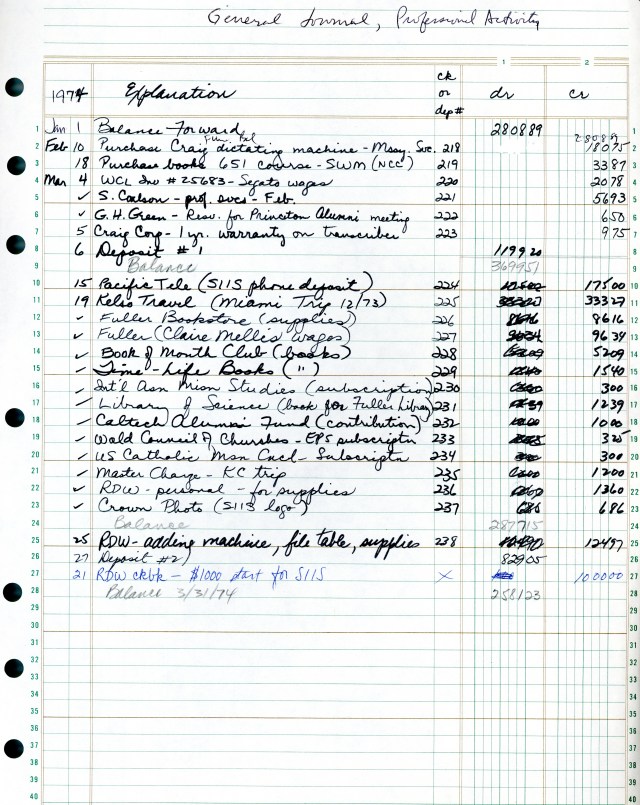 General Journal, Professional Activity
1 2
1974 Explanation ck or dep # dr cr
1 Jan 1 Balance Forward 280889 28089 1
2 Feb 10 Purchase Craig dictating machine - Mssy. Svc. 218 18075 2
3 18 Purchase books 651 course - SWM (NCC) 219 3387 3
4 Mar 4 WCL Inv # 25683 - Segato wages 220 2078 4
5 ✓ S. Coelson - prof. svcs - Feb. 221 5693 5
6 ✓ G.H. Green - Resv. for Princeton Alumni meeting 222 650 6
7 5 Craig Corp - 1 yr. warranty on transcriber 223 975 7
8 6 Deposit # 1 119920 8
9 Balance 369951 9
10 15 Pacific Tele (SIIS phone deposit) 224 17500 10
11 19 Kelso Travel (Miami Trip 12/73) 225 33327 11
12 ✓ Fuller Bookstore (supplies) 226 8616 12
13 ✓ Fuller (Claire Mellis' wages) 227 9634 13
14 ✓ Book of Month Club (books) 228 5209 14
15 ✓ Time-Life Books (") 229 1540 15
16 ✓ Int'l Asn Misn Studies (subscription) 230 300 16
17 ✓ Library of Science (book for Fuller Library) 231 1239 17
18 ✓ Caltech Alumni Fund (contribution) 232 1000 18
19 ✓ Wald Council of Churches - EPS subscriptn 233 325 19
20 ✓ US Catholic Msn Cncl - Subscriptn 234 300 20
21 ✓ Master Charge - KC trip 235 1200 21
22 ✓ RDW - personal - for supplies 236 1360 22
23 ✓ Crown Photo (SIIS logo) 237 686 23
24 Balance 287715 24
25 25 RDW - adding machine, file table, supplies 238 12497 25
26 27 Deposit #2) 82905 26
27 21 RDW ckbk - $1000 start for SIIS X 100000 27
28 Balance 3/31/74 258123 28
29 29
30 30
31 31
32 32
33 33
34 34
35 35
36 36
37 37
38 38
39 39
40 40